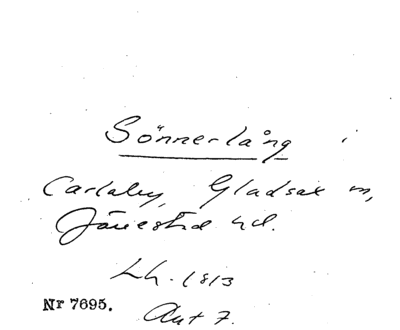 Sönnerlång i
Carlaby, Gladsax m,
Järrestad hd.
Lh. 1813
Nr 7695. Akt 7.